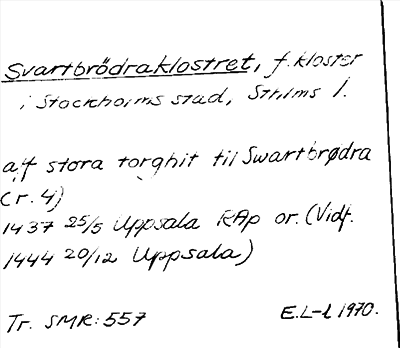 Svartbrödraklostret, f. kloster
i Stockholms stad, Sthlms l.
aff stora torghit til Swartbrødra
(r. 4)
1437 25/5 Uppsala RAp or. (Vidf.
1444 20/12 Uppsala)
Tr. SMR: 557
E.L-l 1970.